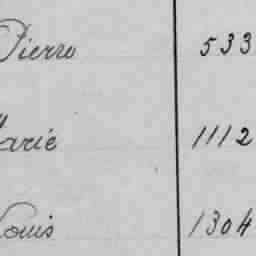 Pierre 533
Marie 1112
Louis 1304